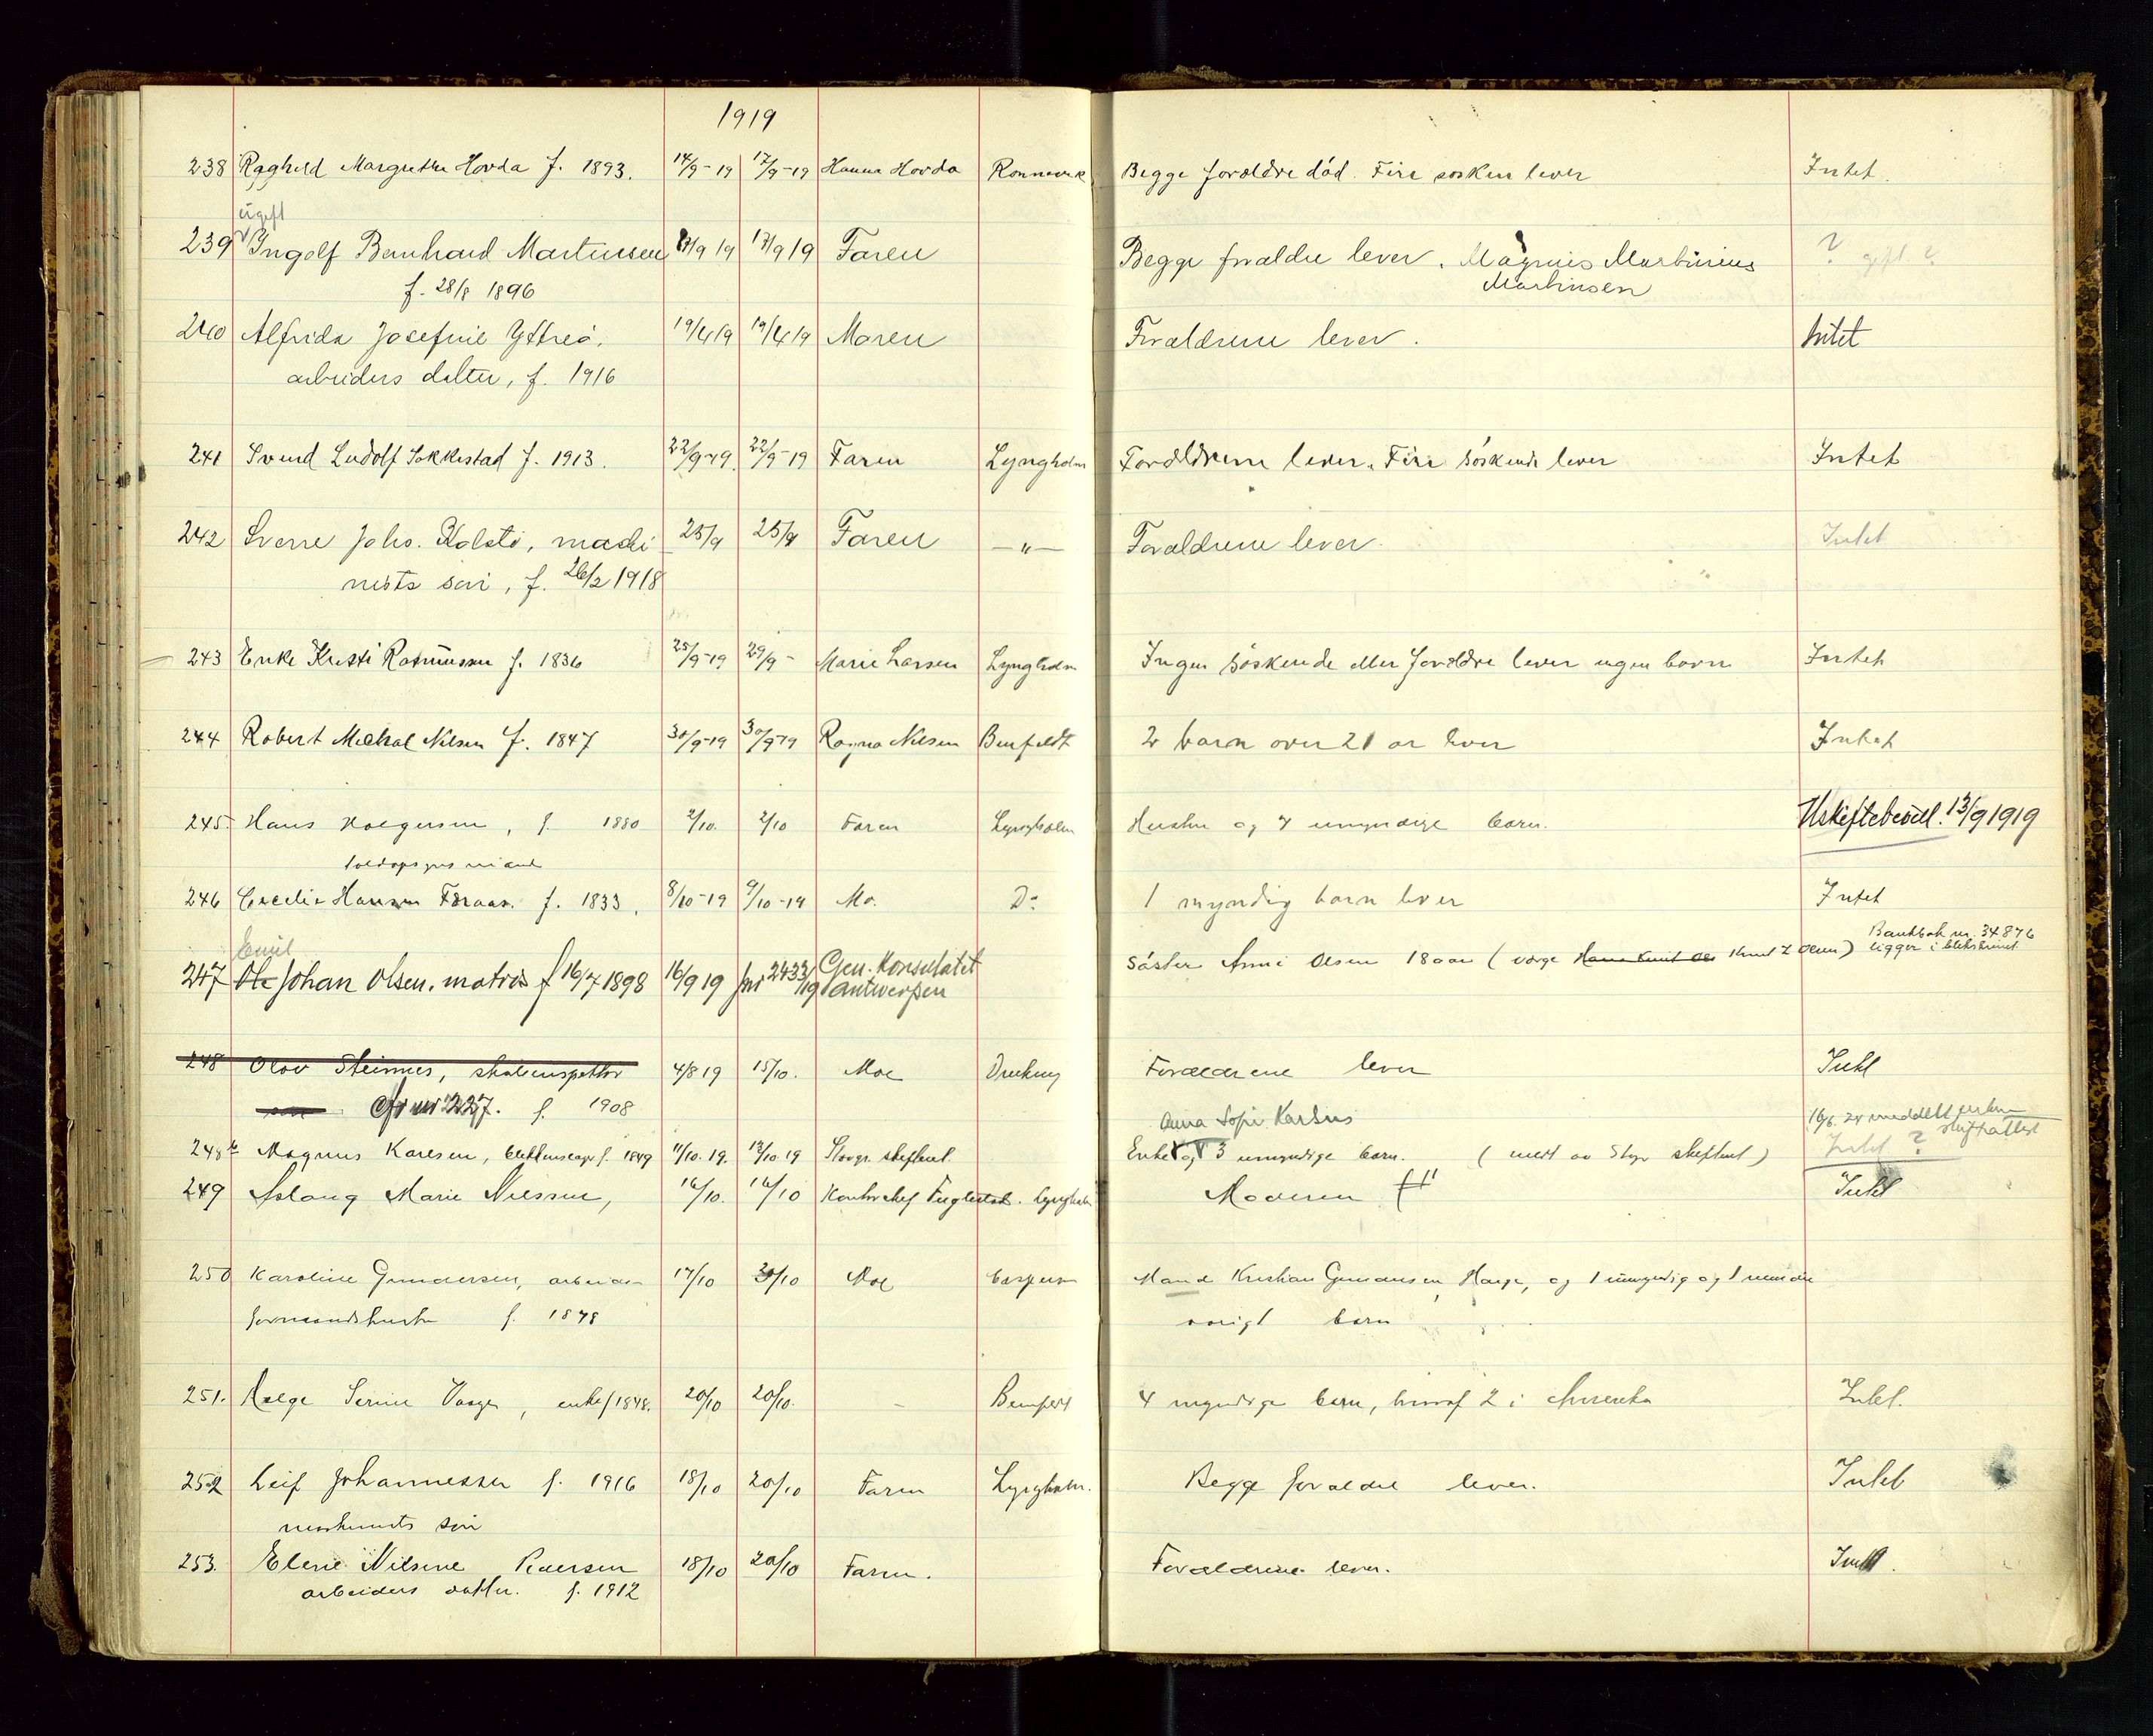 1919
238 Raghild Margrethe Hovda f. 1893. 14/9-19 17/9-19 Hanna Hovda Begge forældre død. Fire søsken lever Intet.
ugift
239 Ingolf Bernhard Martinsen 19 17/9 19 Faren Begge forældre lever. Magnus Martinius ? gift?
f. 28/8 1896 Martinsen
240 Alfrida Josefine Yttreö, 19/4 19 19/4 19 Moren Forældrene lever. Intet
arbeiders datter, f. 1916
241 Svend Ludolf Sokkestad f. 1913. 22/9-19. 22/9-19 Faren Lyngholm Forældrene lever. Fire søskende lever Intet
242 Sverre Johs. Kolstö, maski- 25/9 25/9 Faren —"— Forældrene lever. Intet
nists søn, f. 26/2 1918
243 Enke Kristi Rasmussen f. 1836 25/9-19 29/9- Marie Larsen Lyngholm Ingen søskende eller forældre lever ingen barn Intet
244 Robert Mickal Nilsen f. 1847 30/9-19 30/9-19 Ragna Nilsen Benfeldt 2 barn over 21 år lever Intet
245. Hans Holgersen, f. 1880 2/10. 2/10 Faren Lyngholm Hustru og 7 umyndige barn. Uskiftebevill. 13/9 1919
toldopsynsmand
246 Cecilie Hansen Foraas. f. 1833. 8/10-19 9/10-19 Mo. Do 1 myndig barn lever Intet
Bankbok nr. 34876
Emil Søster Anni Olsen 18 aar (værge Knut Z Olsen) ligger i
247 Ole Johan Olsen. matros f 16/7 1898 16/9 19 Jnr 2433/19 Gen. Konsulatet
Antwerpen
248 Olav Steinnes, skoleinspektör 4/8 19 15/10. Moe Forældrene lever Intet
søn Cfr nr 227. f. 1908
Anna Sofie Karlsen 16/6. 24 meddelt enken
skifteattest
248b Magnus Karlsen, f. 1849 11/10. 19. 13/10. 19 Stavgr. skifteret. Enke og 3 umyndige barn. ( meldt av Stgr skifteret ) Intet ?
249 Aslaug Marie Nilssen, 16/10. 16/10 Kontorchef Fuglestad. Lyngholm Moderen Intet
250 Karoline Gundersen, arbeider- 17/10 20/10 Moe Casperen Mand Kristian Gundersen Hauge, og 1 umyndig og 1 minde-
formandshustru f. 1878 årigt barn
251. Helge Serine Vaage, enke f 1848. 20/10 20/10. - 4 myndige barn, hvoraf 2 i Amerika Intet.
252 Leif Johannessen f. 1916 18/10 20/10 Faren Lyngholm. Begge forældre lever. Intet
maskinists søn
253. Elene Nilsine Pedersen 18/10 20/10 Faren. Forældrene lever. Intet.
arbeiders datter. f. 1912